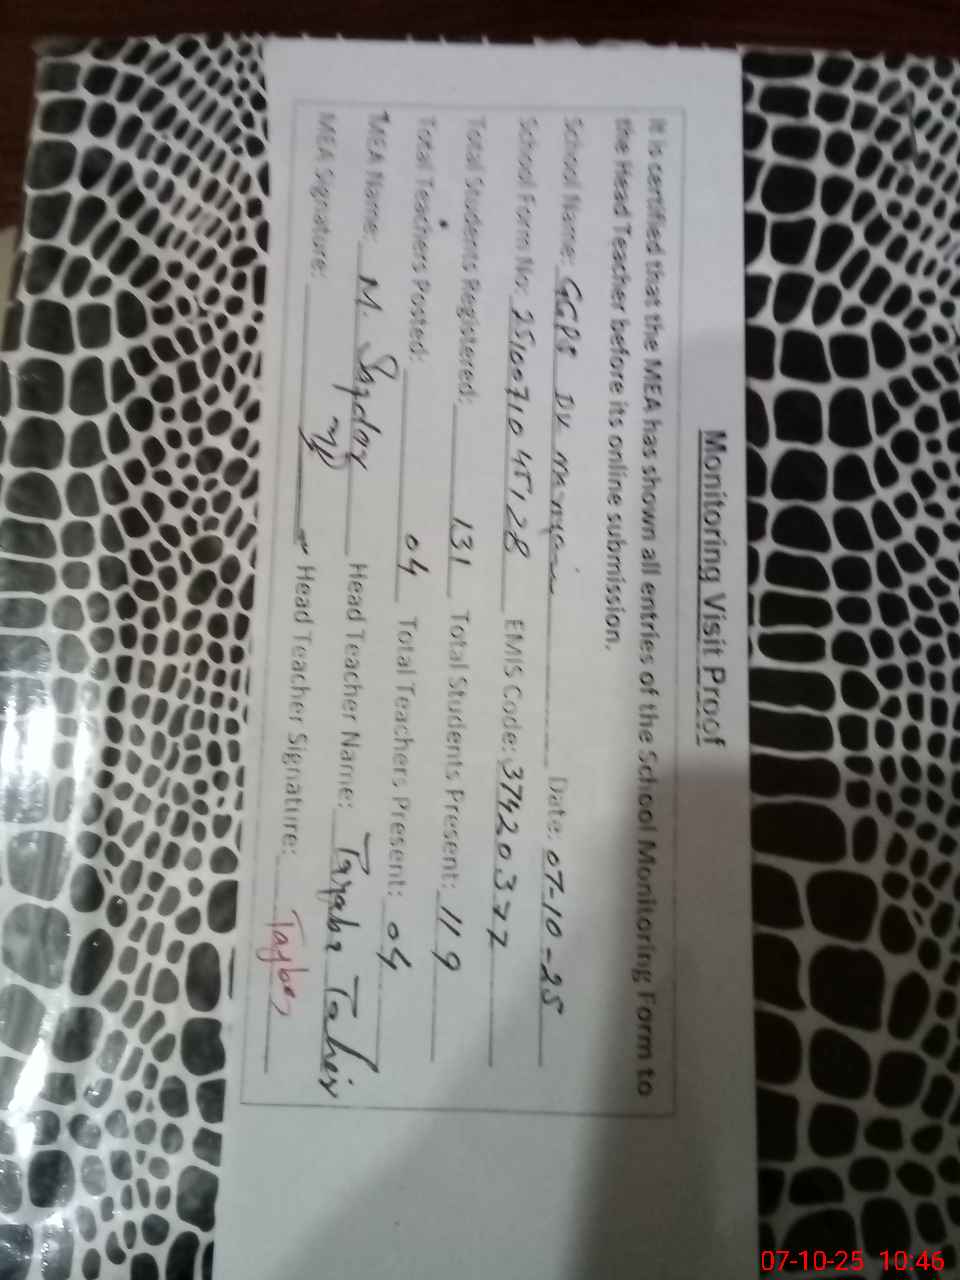 Monitoring Visit Proof
It is certified that the MEA has shown all entries of the School Monitoring Form to
the Head Teacher before its online submission.
School Name: GGPS Date: 07-10-25
School Form No: EMIS Code: 37420377
Total Students Registered: 131 Total Students Present: 119
Total Teachers Posted: 04 Total Teachers Present: 04
MEA Name: M. Head Teacher Name: Tahir
MEA Signature: Head Teacher Signature:
07-10-25 10:46